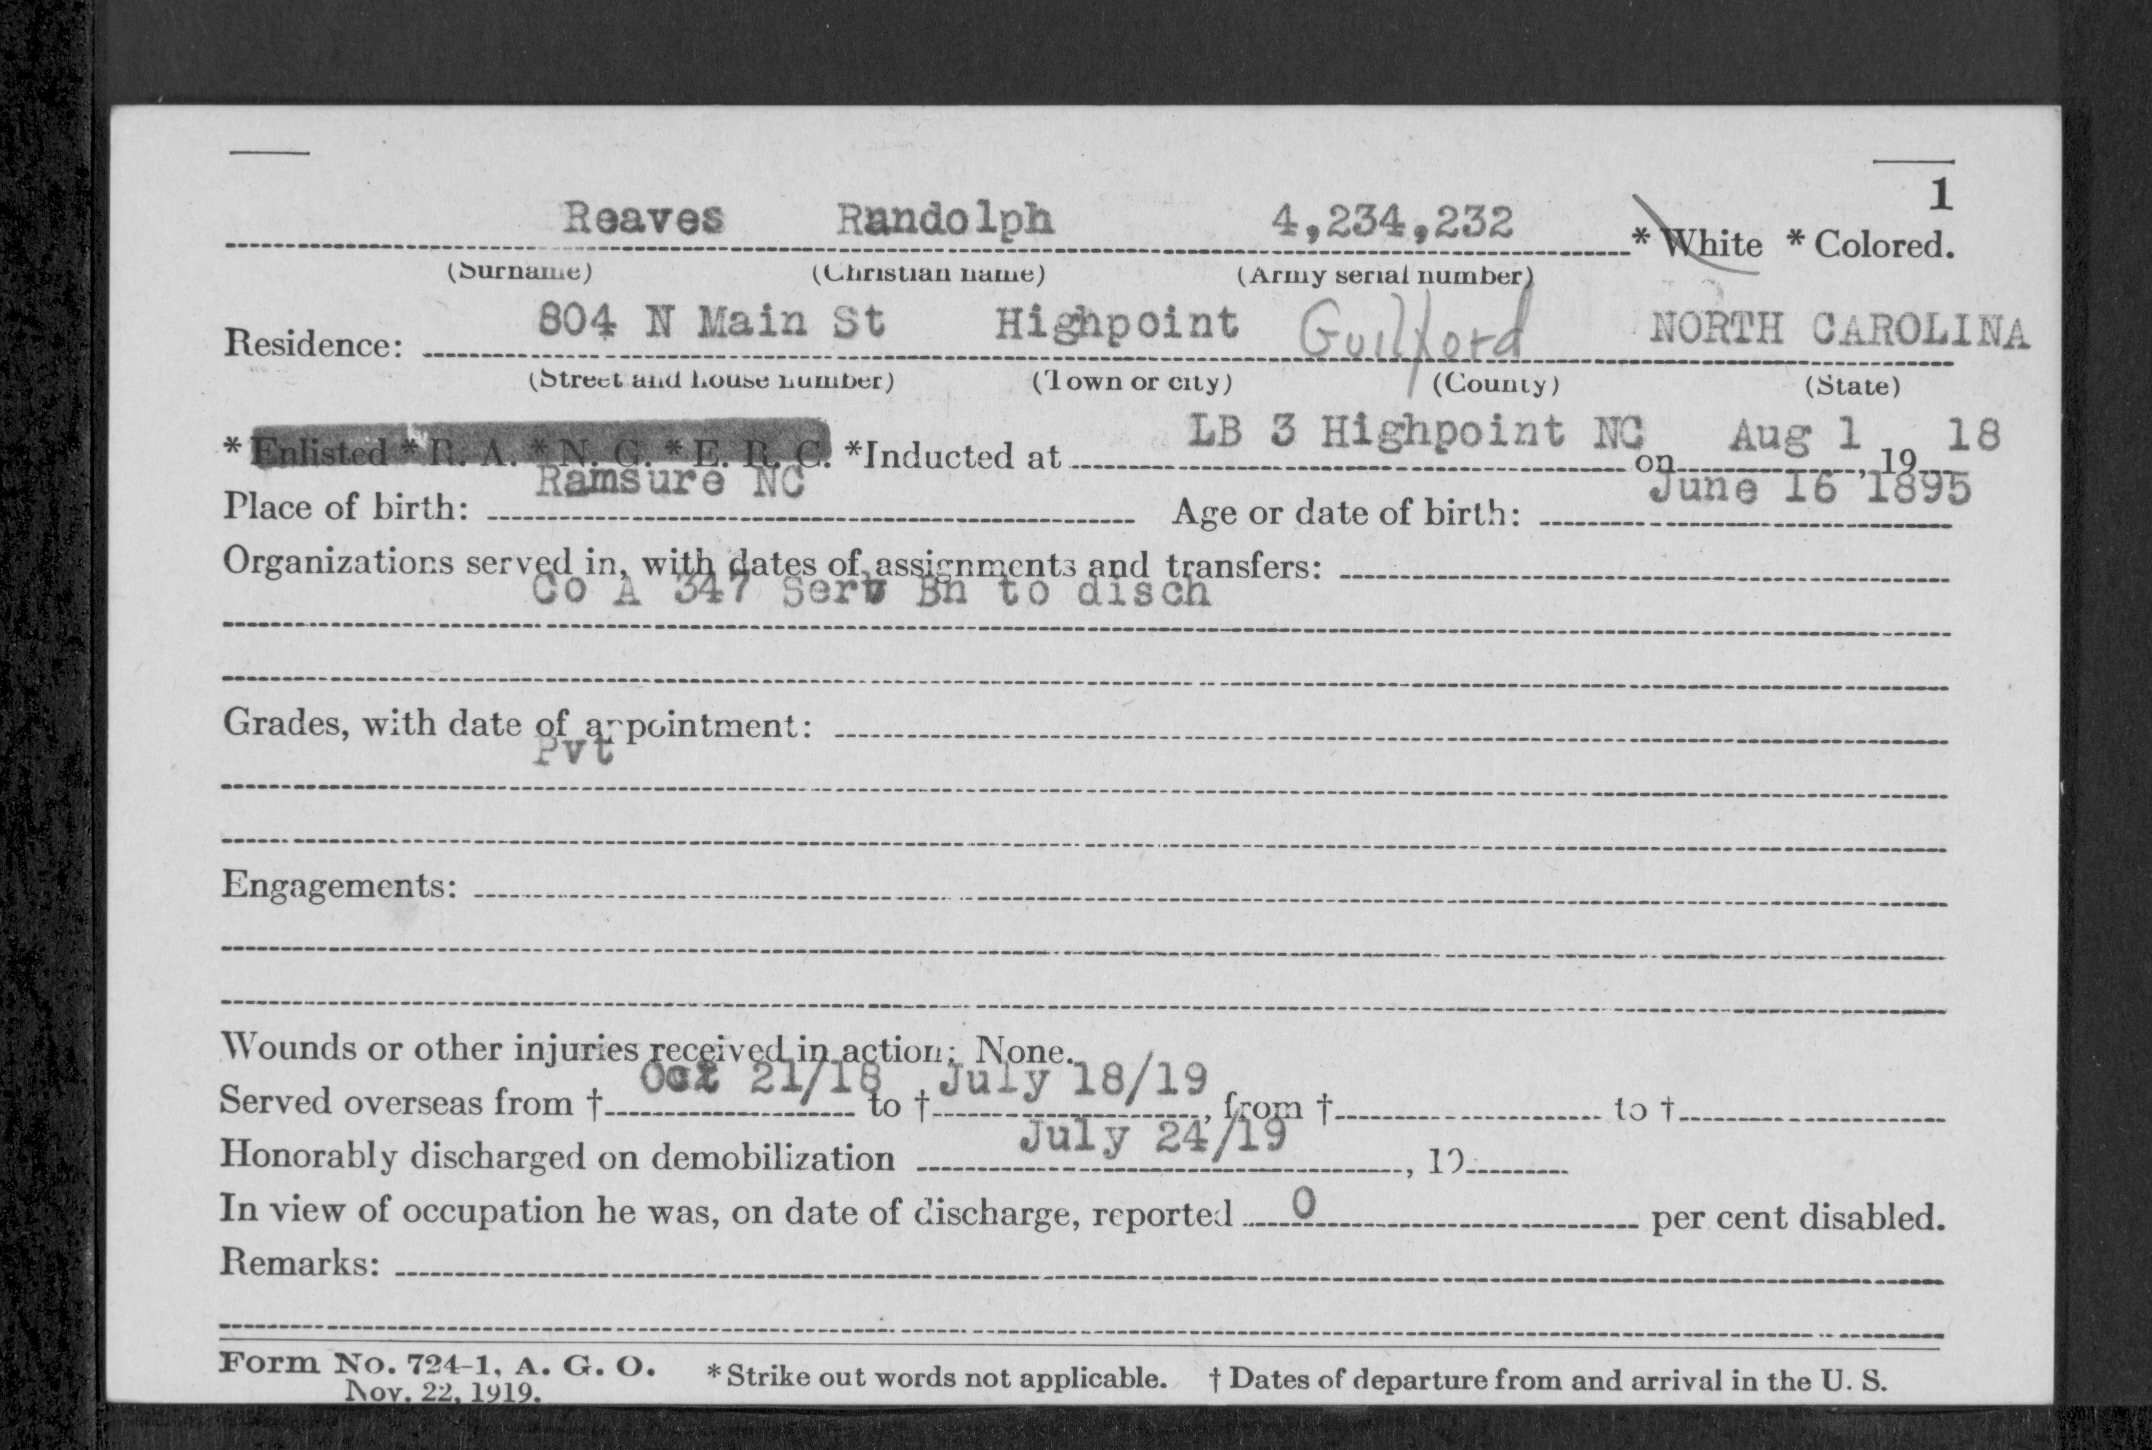 1
Reaves Randolph 4,234,232 * White * Colored.
(Surname) (Christian name) (Army serial number)
Residence: 804 N Main St Highpoint Guilford NORTH CAROLINA
(Street and house number) (Town or city) (County) (State)
* Enlisted * R. A. * N. G. * E. R. C. *Inducted at LB 3 Highpoint NC on Aug 1, 19 18
Place of birth: Ramsure NC Age or date of birth: June 16 1895
Organizations served in, with dates of assignments and transfers:
Co A 347 Serv Bn to disch
Grades, with date of appointment:
Pvt
Engagements:
Wounds or other injuries received in action: None.
Served overseas from † Oct 21/18 to † July 18/19, from † to †
Honorably discharged on demobilization July 24/19, 19
In view of occupation he was, on date of discharge, reported 0 per cent disabled.
Remarks:
Form No. 724-1, A. G. O. * Strike out words not applicable. † Dates of departure from and arrival in the U. S.
Nov. 22, 1919.